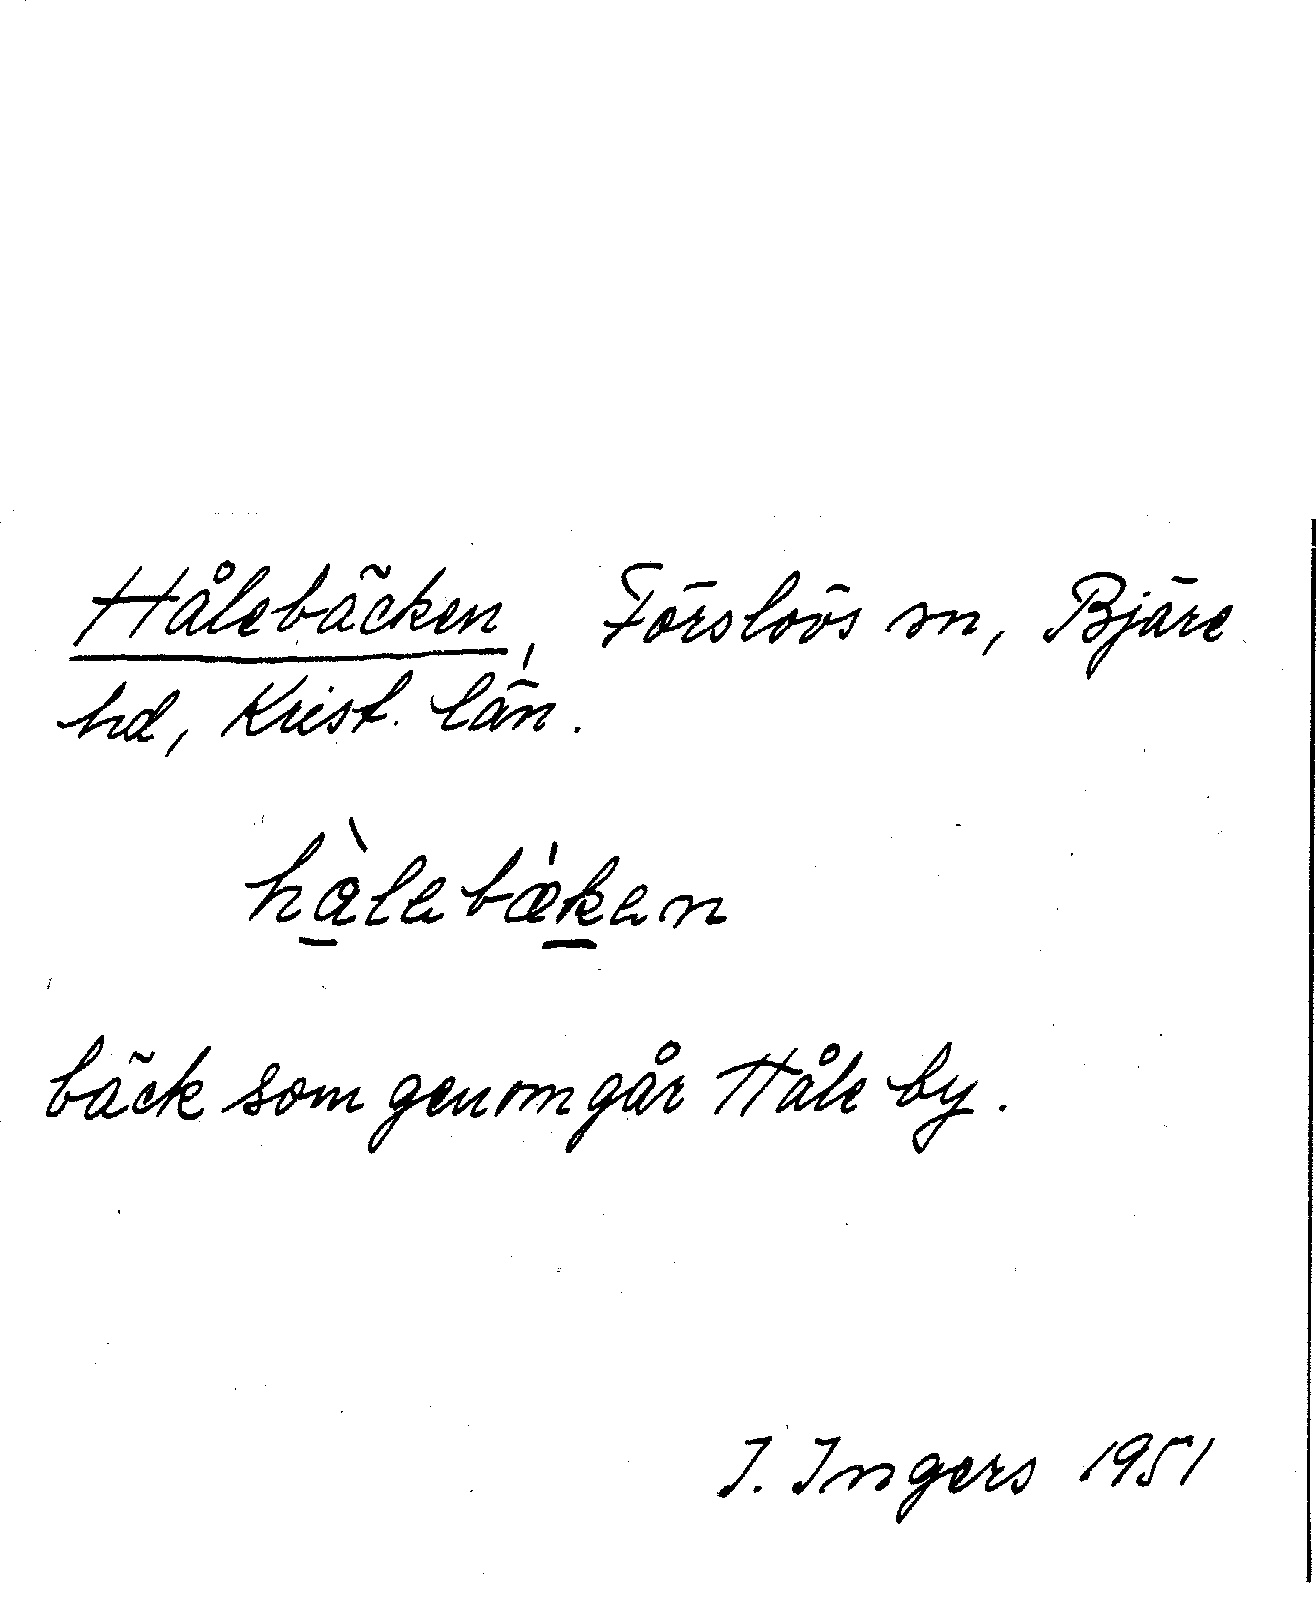 Hålebäcken, Förslövs sn, Bjäre
hd, Krist. län.
hàlebæken
bäck som genomgår Håle by.
I. Ingers 1951